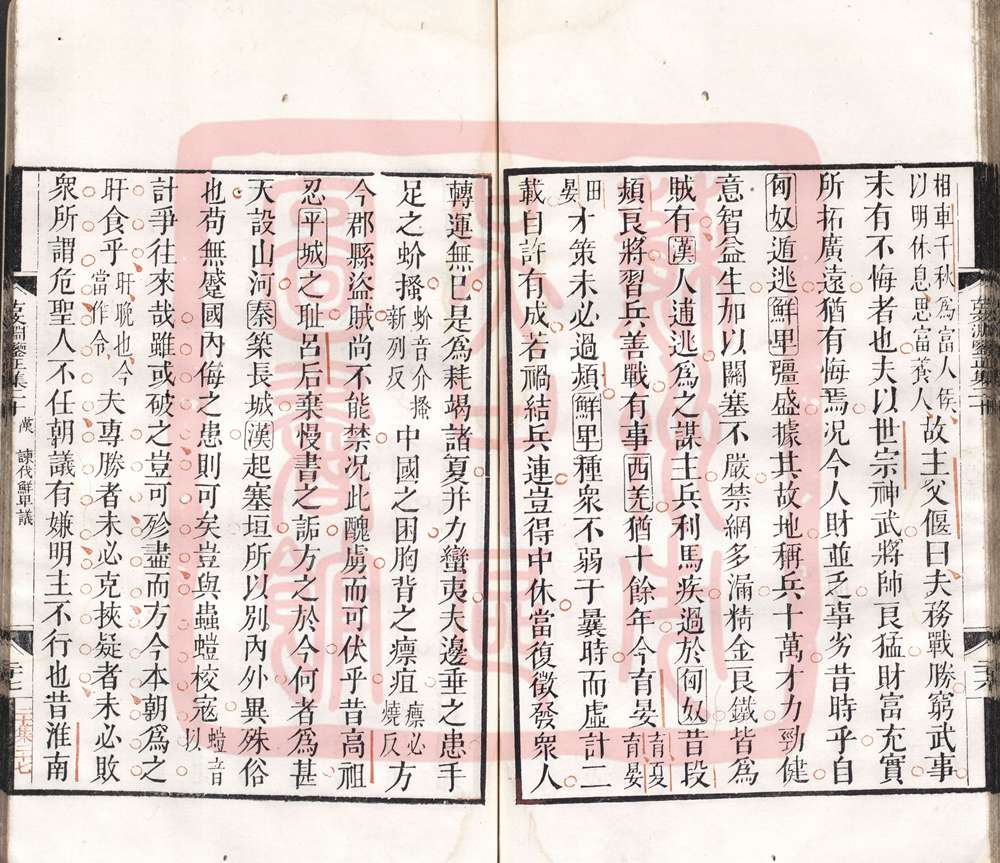 相車千秋爲富人侯
以明休息思富養人故主父偃曰夫務戰勝窮武事
未有不悔者也夫以世宗神武將帥良猛財富充實
所拓廣遠猶有悔焉况今人財並乏事劣昔時乎自
匈奴遁逃鮮卑彊盛據其故地稱兵十萬才力勁健
意智益生加以關塞不嚴禁網多漏精金良鐵皆爲
賊有漢人逋逃爲之謀主兵利馬疾過於匈奴昔段
熲良將習兵善戰有事西羌猶十餘年今育晏育夏
育晏
田
晏才策未必過熲鮮卑種衆不弱于曩時而虛計二
載自許有成若禍結兵連豈得中休當復徵發衆人
古文淵鑒正集二十
轉運無已是爲耗竭諸夏并力蠻夷夫邊垂之患手
足之蚧搔蚧音介搔
新列反中國之困胸背之瘭疽瘭必
燒反方
今郡縣盜賊尚不能禁况此醜虜而可伏乎昔高祖
忍平城之耻呂后棄慢書之詬方之於今何者爲甚
天設山河秦築長城漢起塞垣所以别內外異殊俗
也苟無蹙國內侮之患則可矣豈與蟲螘校寇螘音
以
計爭往來哉雖或破之豈可殄盡而方今本朝爲之
旰食乎旰晚也今
當作令夫專勝者未必克挾疑者未必敗
衆所謂危聖人不任朝議有嫌明主不行也昔淮南
古文淵鑒正集二十 漢 諫伐鮮卑議